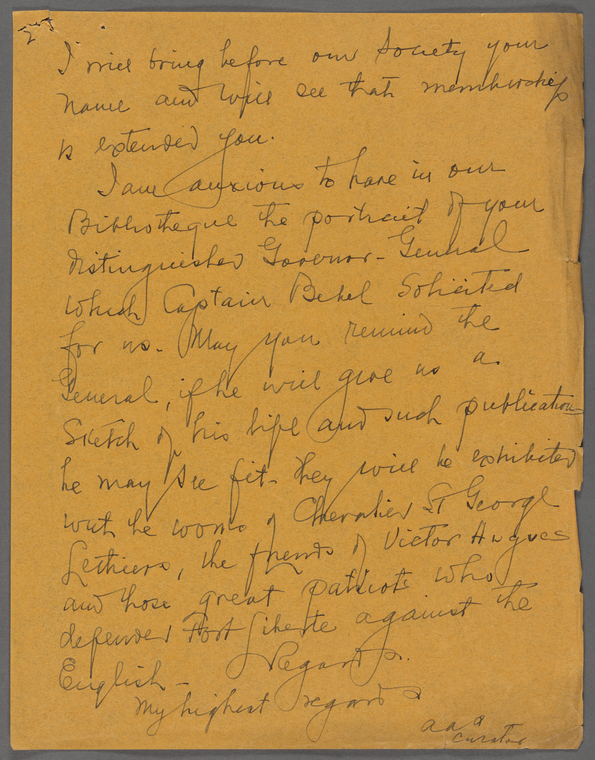 I will bring before our Society your
name and will see that membership
is extended you.
I am anxious to have in our
Bibliotheque the portrait of your
distinguished Governor-General
which Captain Bebel Solicited
for us. May you remind the
General, if he will give us a
Sketch of his life and such publication
he may see fit - They will be exhibited
with he works of Chevalier St George
Lethiere, the friends of Victor Hugues
and those great patriots who
defended Fort Liberte against the
English -
Regards.
My highest regards
a a s
Curator